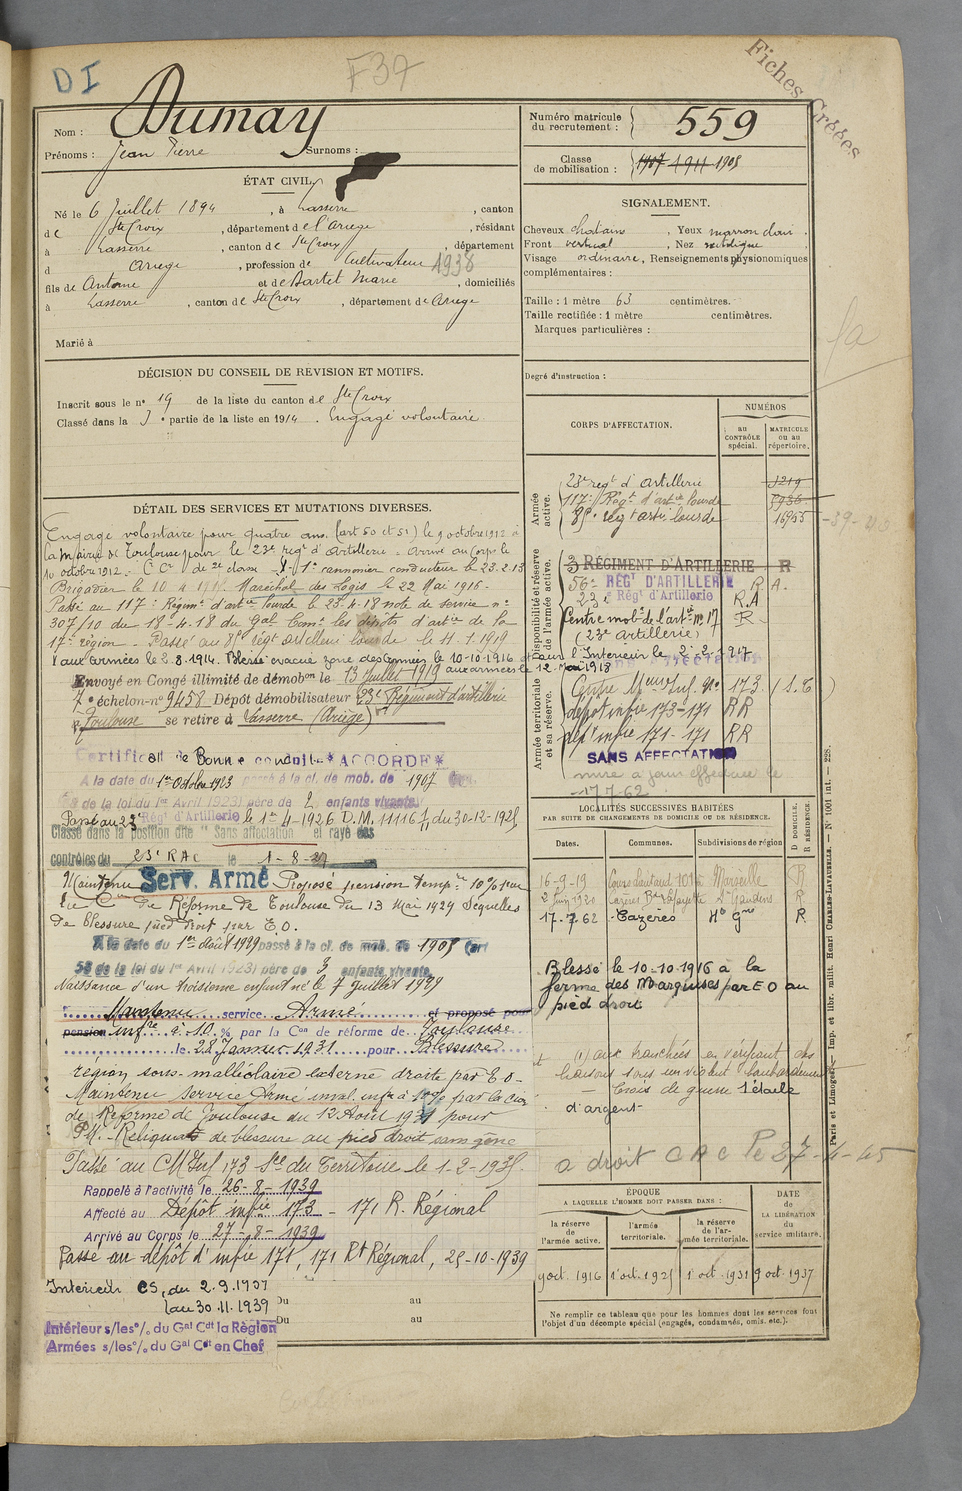 DI
F37
Fiches Créées
Nom : Dumay
Prénoms : Jean Pierre Surnoms :
Numéro matricule du recrutement : 559
Classe de mobilisation : 1907 1911 1905
ÉTAT CIVIL.
Né le 6 Juillet 1894, à Lasserre, canton
de Ste Croix, département de l'Ariège, résidant
à Lasserre, canton de Ste Croix, département
d Ariège, profession de Cultivateur 1938
fils de Antoine et de Bartet Marie, domiciliés
à Lasserre, canton de Ste Croix, département de Ariège
Marié à
SIGNALEMENT.
Cheveux chatains, Yeux marron clair.
Front vertical, Nez rectiligne
Visage ordinaire, Renseignements physionomiques
complémentaires :
Taille : 1 mètre 63 centimètres.
Taille rectifiée : 1 mètre centimètres.
Marques particulières :
Degré d'instruction :
DÉCISION DU CONSEIL DE REVISION ET MOTIFS.
Inscrit sous le no 19 de la liste du canton de Ste Croix
Classé dans la 3e partie de la liste en 1914. Engagé volontaire
CORPS D'AFFECTATION.
NUMÉROS
AU CONTRÔLE spécial.
MATRICULE OU AU répertoire.
Armée active.
23e regt d'artillerie 3219
117e Régt d'artie lourde 5936
81e régt arti lourde 16955
Disponibilité et réserve de l'armée active.
3 RÉGIMENT D'ARTILLERIE R
56e RÉGt D'ARTILLERIE R A.
23e Régt d'Artillerie R.A
Centre mobon de l'artie no 17 R
(23e artillerie)
l'Intérieur le 2-2-1917
Armée territoriale et sa réserve.
Centre Mon Inf. No 173
dépôt infie 173-171 RR
dépt infie 171-171 RR
SANS AFFECTATION
mise à jour effectuée le
17-7-62
DÉTAIL DES SERVICES ET MUTATIONS DIVERSES.
Engagé volontaire pour quatre ans (art 50 et 51) le 9 octobre 1912 à
la Mairie de Toulouse pour le 23e regt d'artillerie. Arrivé au corps le
10 octobre 1912. 2e Cr de 2e classe. 1er cannonier conducteur le 23.2.13
Brigadier le 10.4. Maréchal des Logis le 22 Mai 1916.
Passé au 117e Régimt d'artie lourde le 23.4.18 note de service no
307/10 du 18.4.18 du Gal Comt les dépôts d'artie de la
17e région. Passé au 81e régt artillerie lourde le 11.1.1919
aux armées le 2.8.1914. Blessé évacué zone des armées le 10-10-1916
aux armées le 12 Mai 1918
Envoyé en Congé illimité de démobon le 13 juillet 1919
7e échelon no 9458 Dépôt démobilisateur 23e Régiment d'artillerie
Toulouse se retire à Lasserre (Ariège)
Certificat de Bonne conduite ACCORDÉ
A la date du 1er Octobre 1923 passé à la cl. de mob. de 1907
de la loi du 1er Avril 1923) père de 2 enfants vivants.
Passé au 23e Régt d'Artillerie le 1er 4-1926 D.M. 11116 du 30-12-1925
Classé dans la position dite "Sans affectation" et rayé des
contrôles du 23e RAC le 1-8-27
Maintenu Serv. Armé Proposé pension tempre 10% par
la Con de Réforme de Toulouse du 13 Mai 1929 Séquelles
de blessure pied droit par E.O.
A la date du 1er Août 1929 passé à la cl. de mob. de 1905 (art
58 de la loi du 1er Avril 1923) père de 3 enfants vivants.
Naissance d'un troisième enfant né le 7 Juillet 1929
Maintenu service Armé et proposé pour
pension infre à 10 % par la Con de réforme de Toulouse
le 28 Janvier 1931 pour Blessure
région sous-malléolaire externe droite par E.O-
Maintenu Service Armé inval. infre à 10% par la Con
de Réforme de Toulouse du 12 Août 1931 pour
P.M. - Reliquats de blessure au pied droit sans gêne
Passé au CM Inf 173 Son du Territoire le 1-2-1935.
Rappelé à l'activité le 26-8-1939
Affecté au Dépôt infie 173 - 171 R. Régional
Arrivé au Corps le 27-8-1939
Passé au dépôt d'infie 171, 171 Rt Régional, 25-10-1939
Intérieur CS, du 2.9.1939
au 30.11.1939
Du au
Du au
Intérieur s/les o/. du Gal Cdt la Région
Armées s/les o/. du Gal Cdt en Chef
LOCALITÉS SUCCESSIVES HABITÉES
PAR SUITE DE CHANGEMENTS DE DOMICILE OU DE RÉSIDENCE.
Dates. Communes. Subdivisions de région D DOMICILE. R RÉSIDENCE.
16-9-19 101 Marseille R
2 Juin 1930 Cazères Bd Lafayette St Gaudens R
17.7.62 Cazères Hte Gne R
Blessé le 10-10-1916 à la
ferme des Marquises par EO au
pied droit
(1) aux tranchées en vérifiant des
liaisons sous un violent bombardement
- Croix de guerre 1 étoile
d'argent
a droit C A C le 27-4-45
ÉPOQUE
A LAQUELLE L'HOMME DOIT PASSER DANS :
DATE DE LA LIBÉRATION du service militaire.
la réserve de l'armée active.
l'armée territoriale.
la réserve de l'armée territoriale.
9 oct. 1916 1 oct. 1925 1 oct. 1931 9 oct. 1937
Ne remplir ce tableau que pour les hommes dont les services font
l'objet d'un décompte spécial (engagés, condamnés, omis. etc.).
Paris et Limoges. — Imp. et libr. milit. Henri CHARLES-LAVAUZELLE. — No 1001 int. — 228.